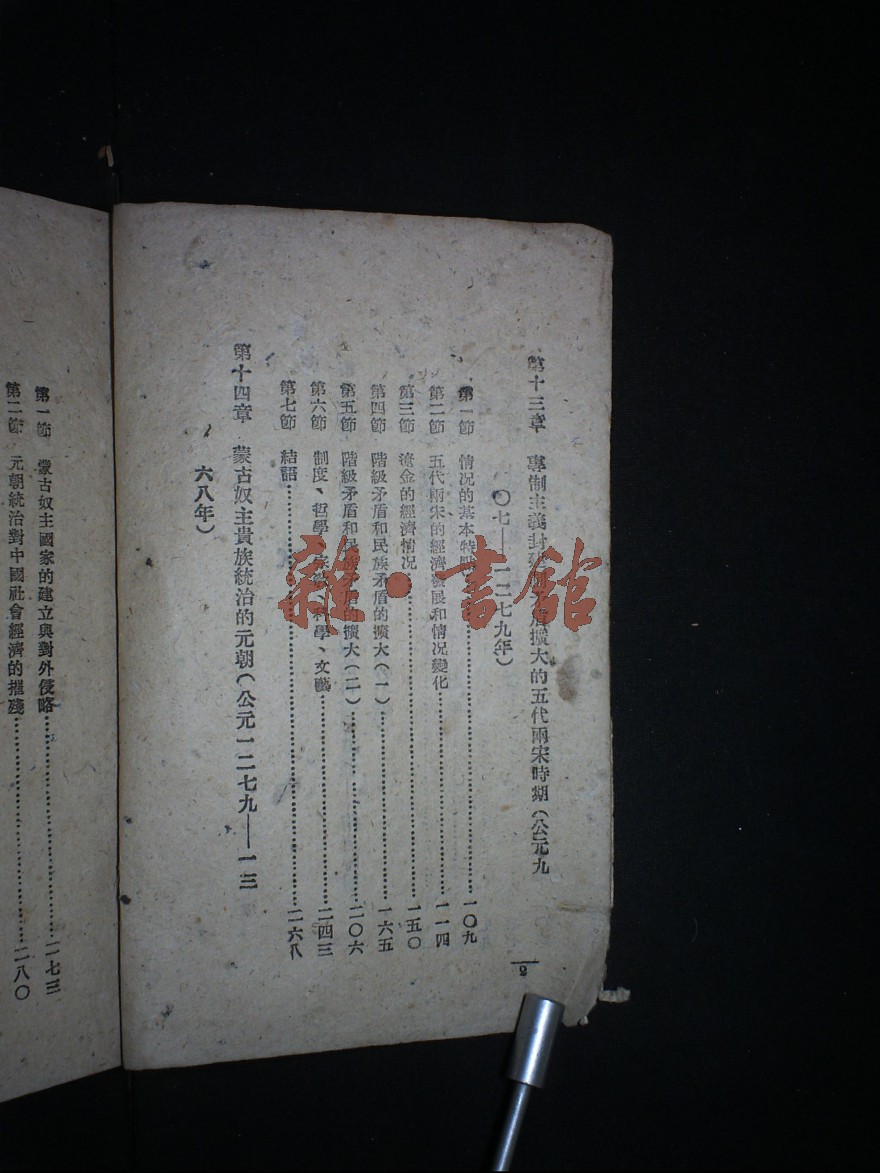 第十三章 專制主義封建 擴大的五代兩宋時期(公元九
〇七—一二七九年)
第一節 情况的基本特點 一〇九
第二節 五代兩宋的經濟發展和情况變化 一一四
第三節 遼金的經濟情况 一五〇
第四節 階級矛盾和民族矛盾的擴大(一) 一六五
第五節 階級矛盾和民族矛盾的擴大(二) 二〇六
第六節 制度、哲學、 科學、文藝 二四三
第七節 結語 二六八
第十四章 蒙古奴主貴族統治的元朝(公元一二七九—一三
六八年)
2
第一節 蒙古奴主國家的建立與對外侵略 二七三
第二節 元朝統治對中國社會經濟的摧殘 二八〇
雜·書館